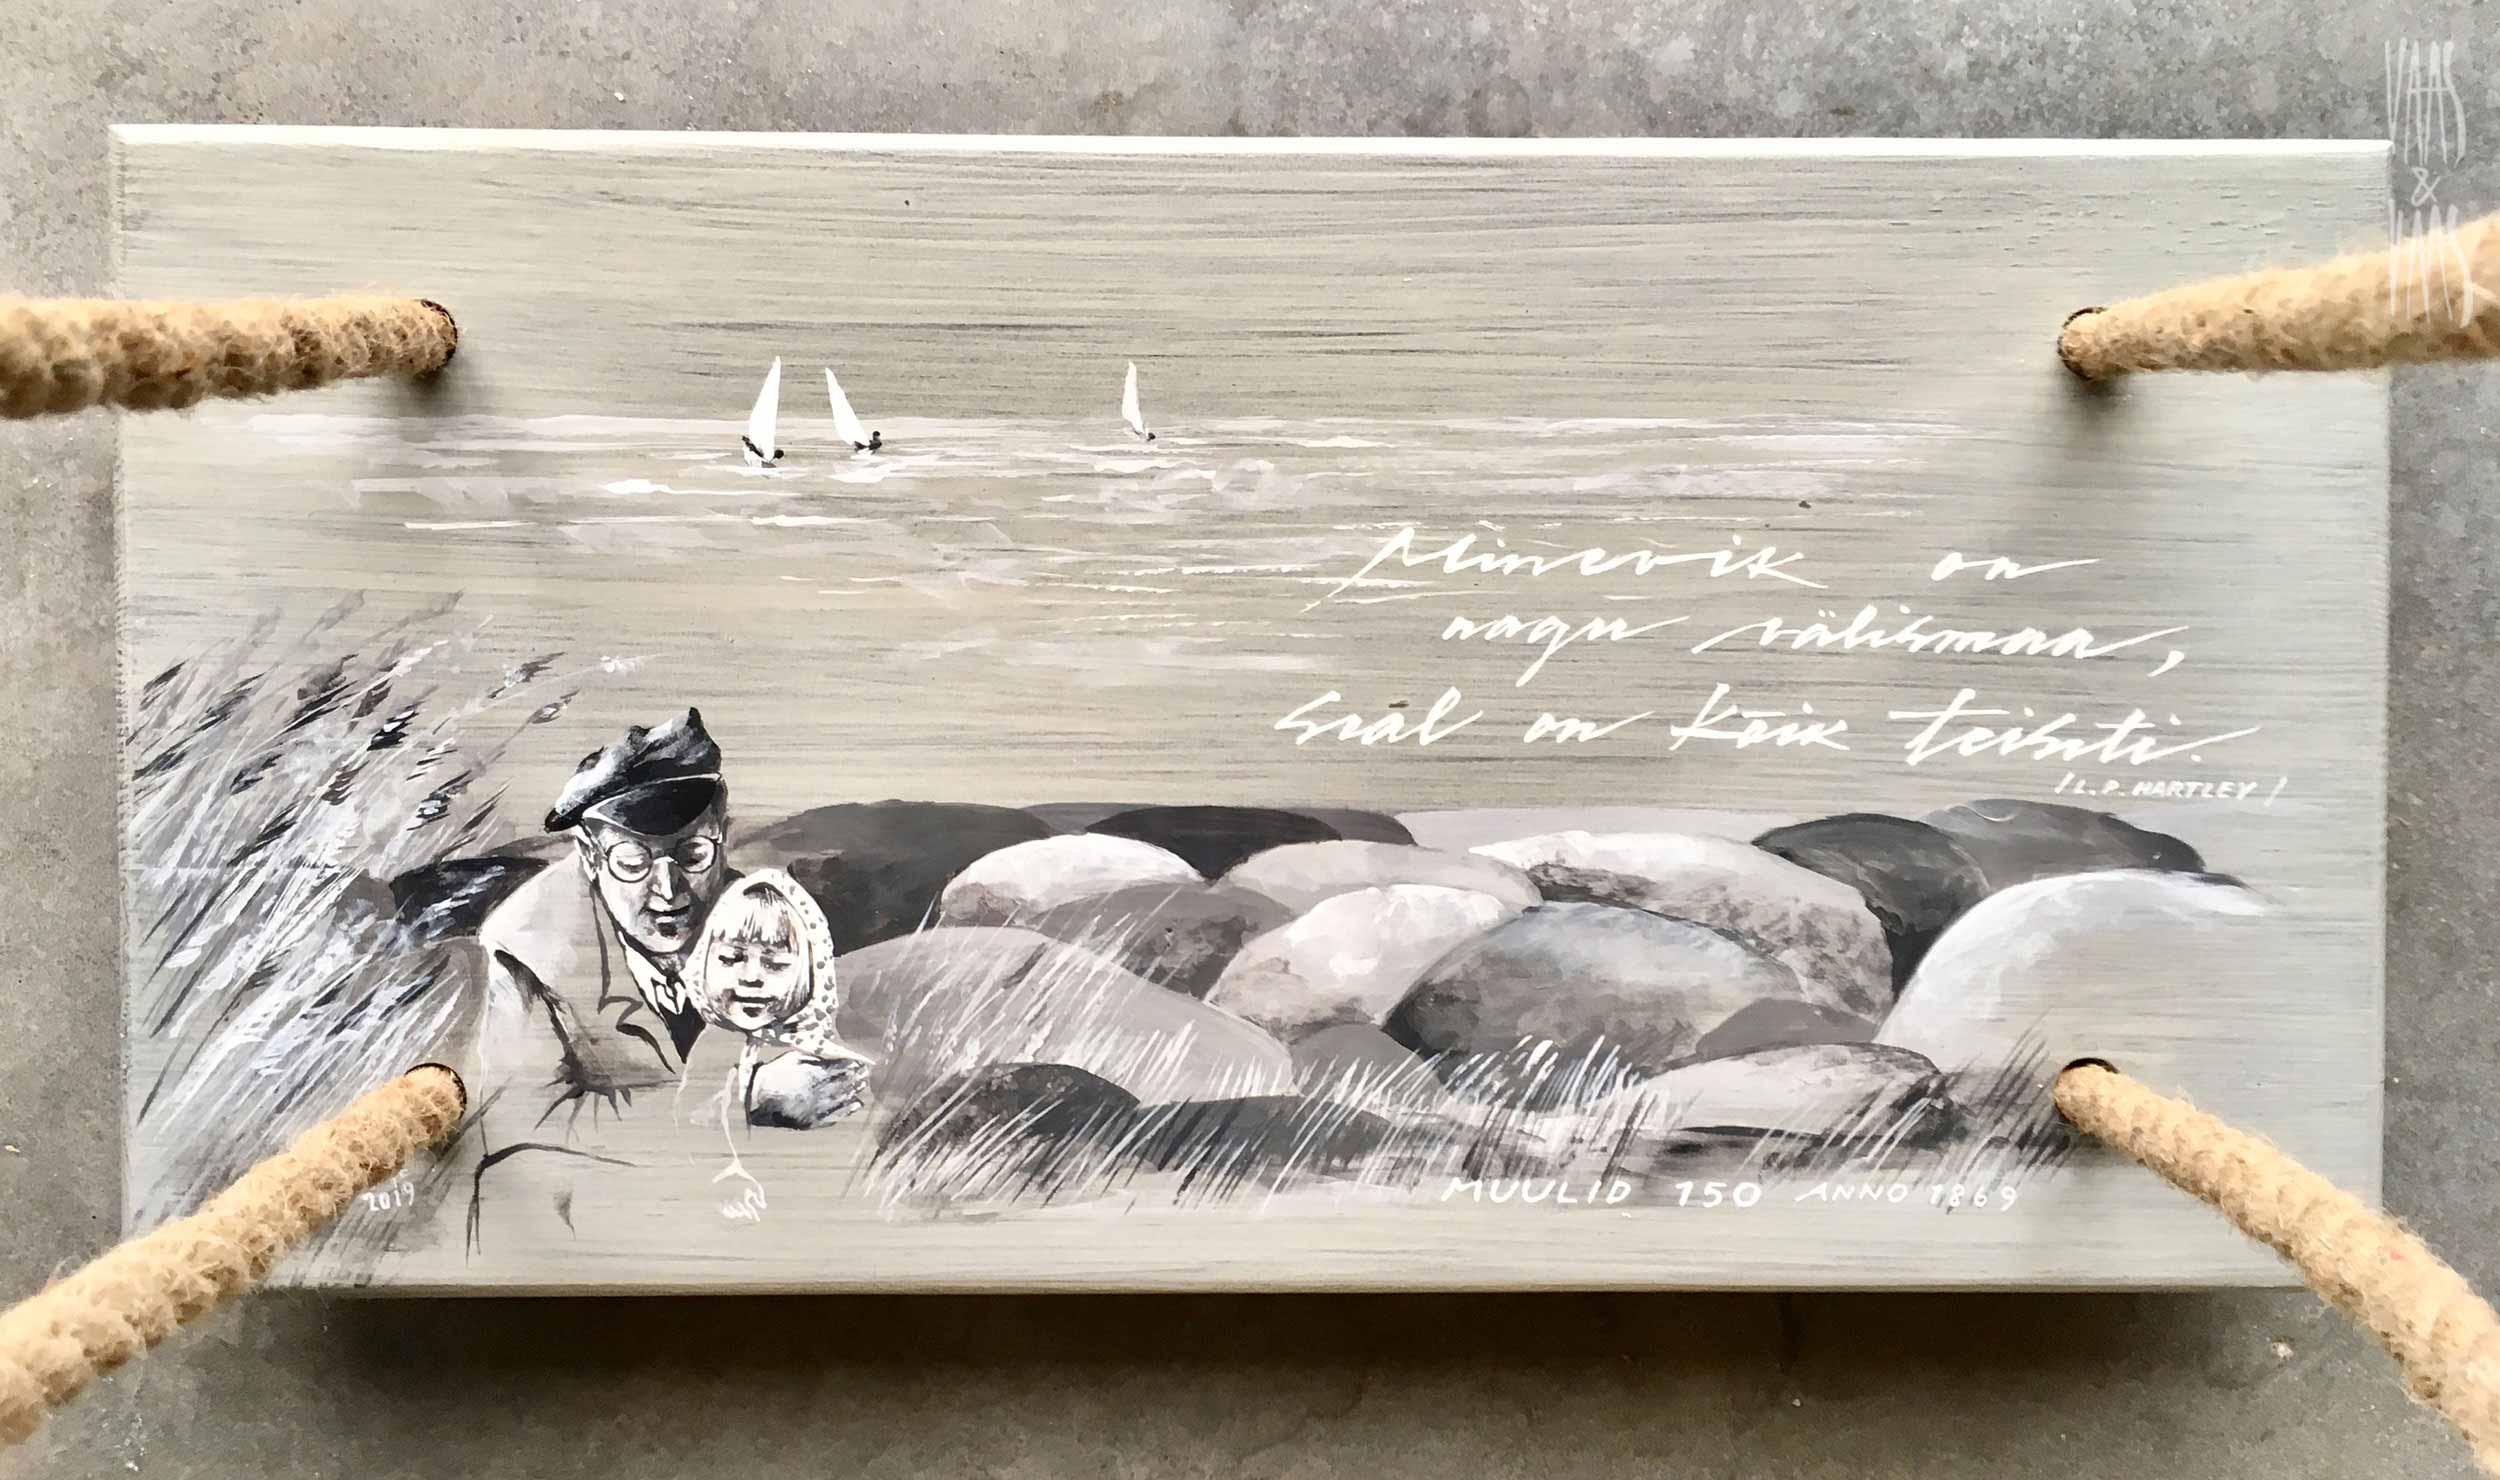 VAAS
&
VAAS
Minevik on
nagu välismaa,
seal on kõik teisiti.
/ L. P. HARTLEY /
2019
MUULID 150 ANNO 1869